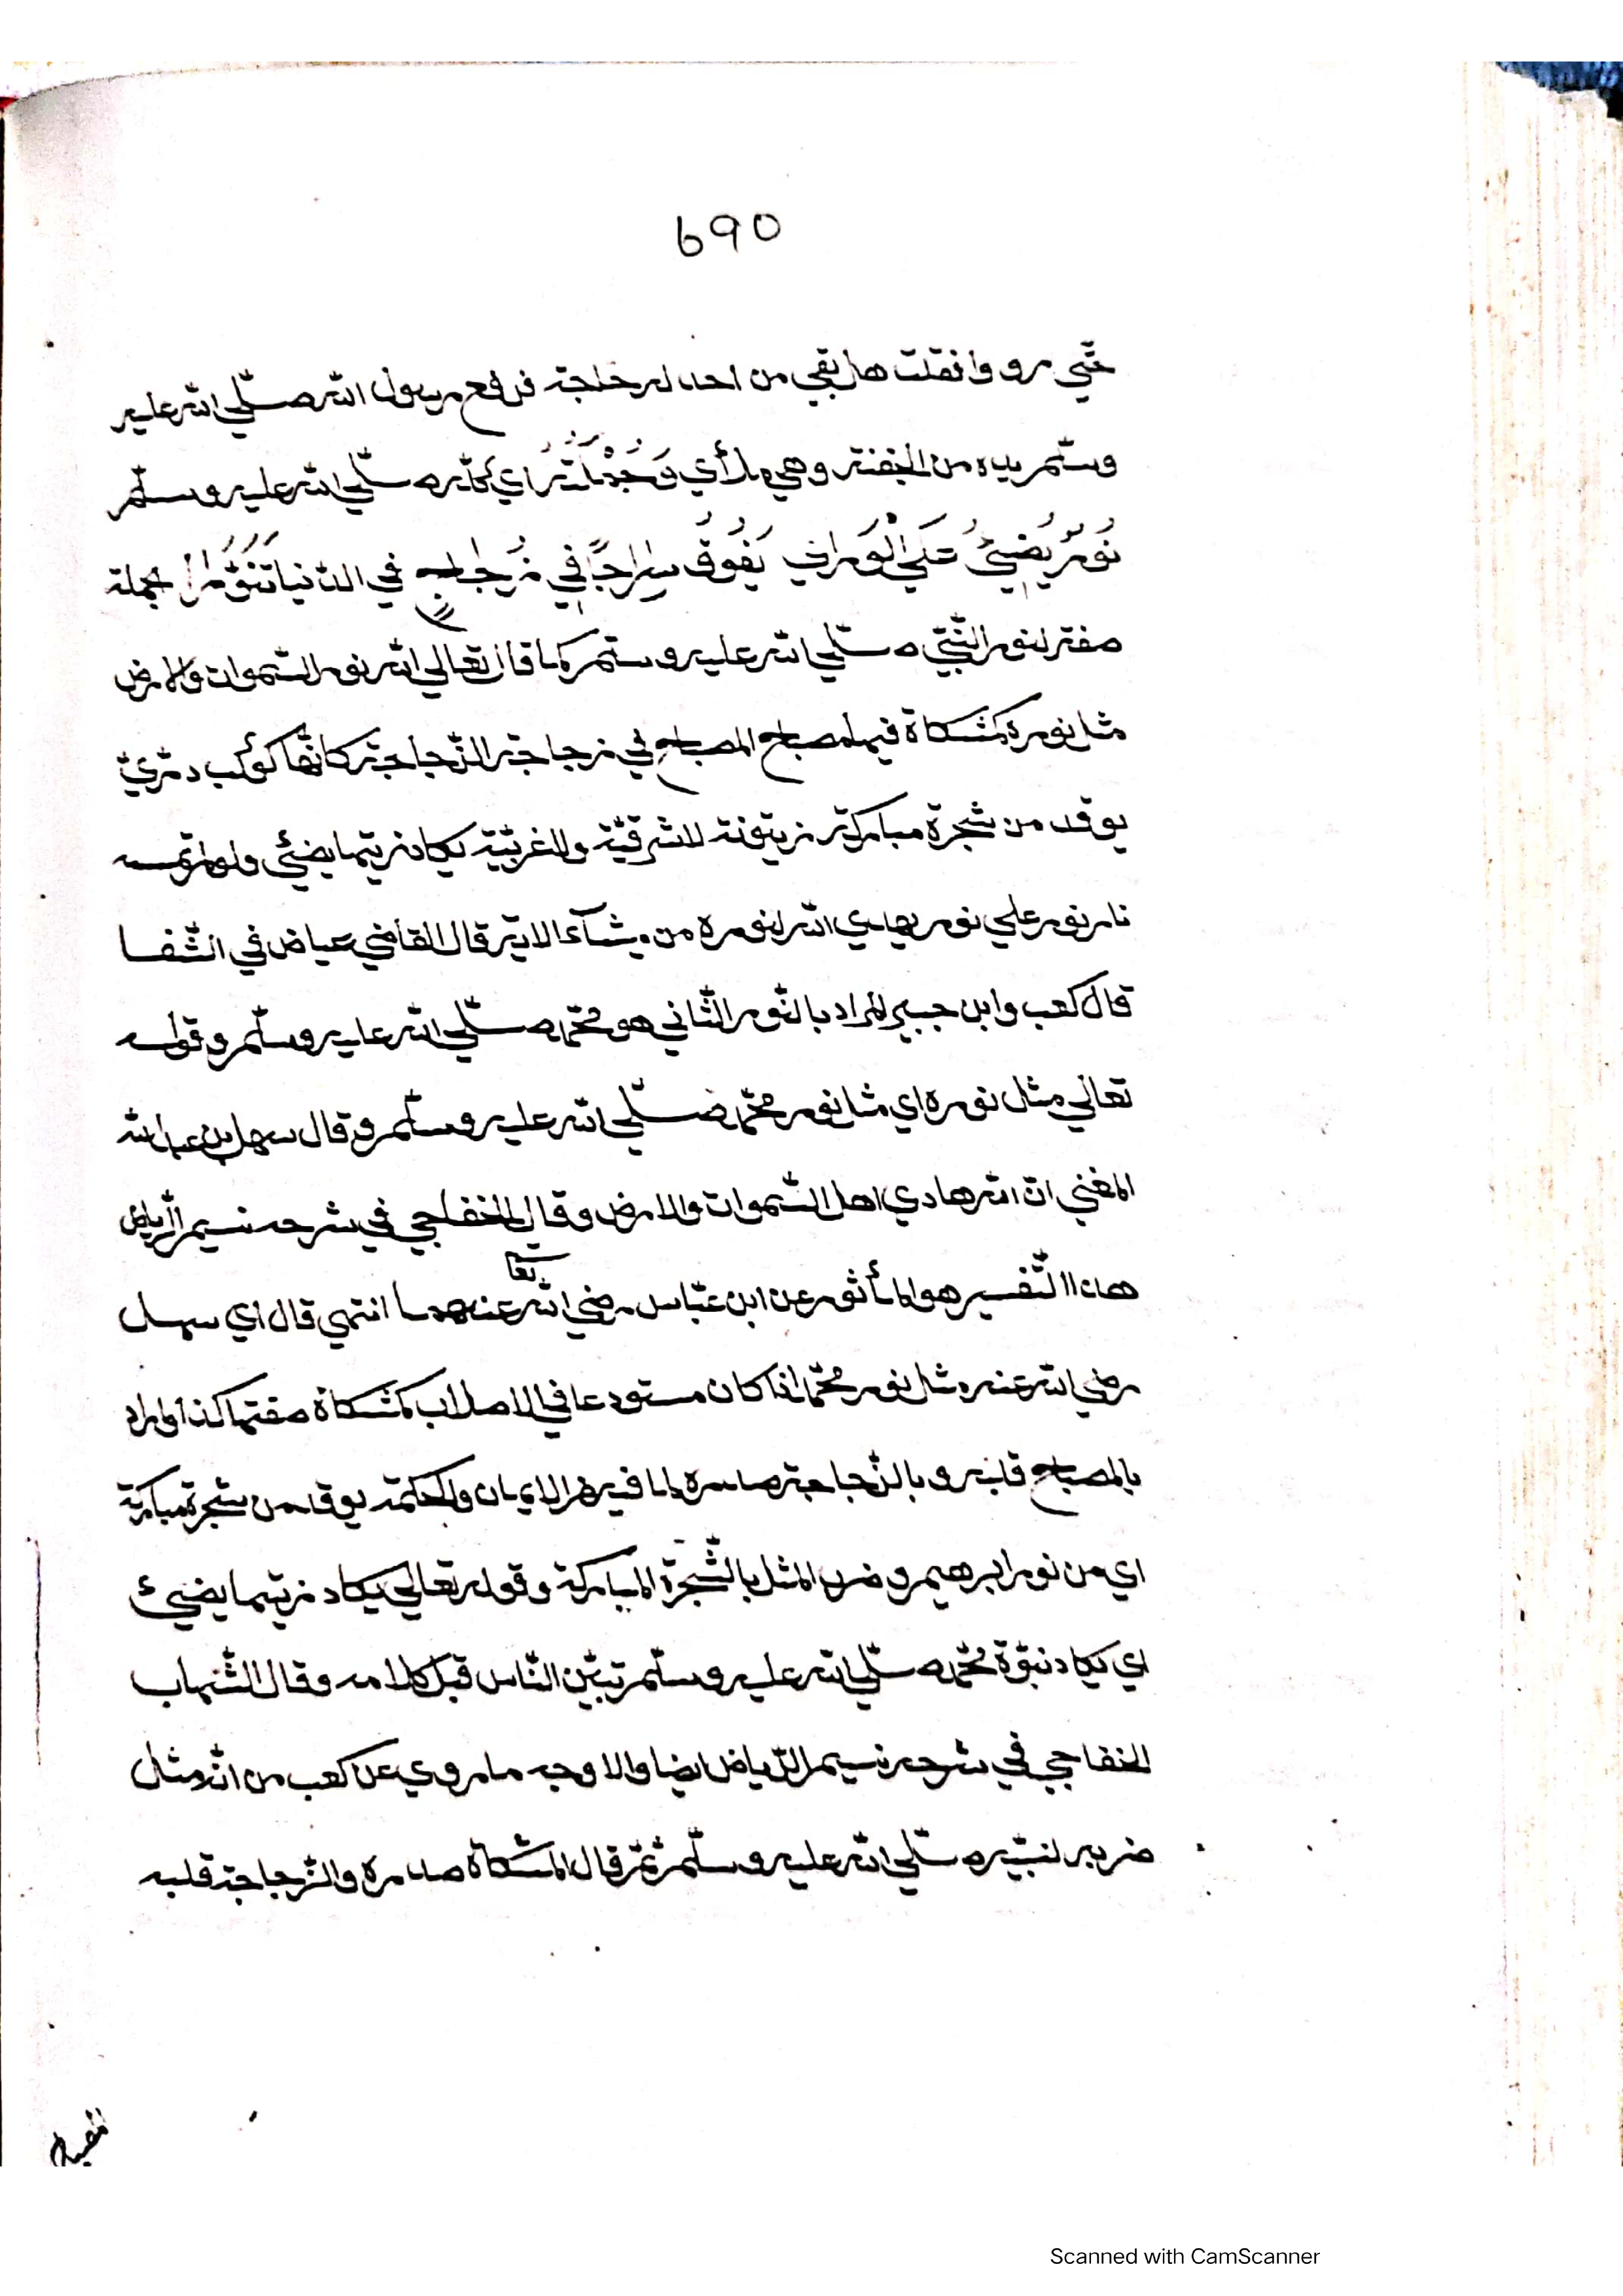 690
حتّي رووا فقلت هل بقي من احد له حاجة فرفع رسول الله صلّي الله عليه
وسلّم يده من الجفنة وهي ملأي وَجُدْ اي كأنّه صلّي الله عليه وسلّم
نُورٌ يُضِيْئُ عَلَي الْوَرَافِي يَفُوقُ سِرَاجًا فِي زُجَاجٍ في الدّنيا تَنَوُّرًا الجملة
صفة لنور النّبيّ صلّي الله عليه وسلّم كما قال تعالي الله نور السّموات والارض
مثل نوره كمشكاة فيها مصباح المصباح في زجاجة الزّجاجة كانّها كوكب درّيّ
يوقد من شجرة مباركة زيتونة لا شرقيّة ولا غربيّة يكاد زيتها يضيئ ولو لم تمسسه
نار نور علي نور يهدي الله لنوره من يشآء الاية قال القاضي عياض في الشّفا
قال كعب وابن جبير المراد بالنّور الثّاني هو محمّد صلّي الله عليه وسلّم وقوله
تعالي مثل نوره اي مثل نور محمّد صلّي الله عليه وسلّم وقال سهل بن عبد الله
المعني انّ الله هادي اهل السّموات والارض وقال الخفاجي في شرحه نسيم الرّياض
هذا التّفسير هو المأثور عن ابن عبّاس رضي الله تعا عنهما انتهي قال اي سهل
رضي الله عنه مثل نور محمّد اذا كان مستودعا في الاصلاب كمشكاة صفتها كذا واراد
بالمصباح قلبه وبالزّجاجة صدره لما فيه من الايمان والحكمة يوقد من شجرة مباركة
اي من نور ابرهيم وضرب المثل بالشّجرة المباركة وقوله تعالي يكاد زيتها يضيئ
اي يكاد نبوّة محمّد صلّي الله عليه وسلّم تبيّن النّاس قبل كلامه وقال الشّهاب
الخفاجي في شرحه نسيم الرّياض ايضا والاوجه ما روي عن كعب من انّه مثل
ضربه لنبيّه صلّي الله عليه وسلّم ثمّ قال المشكاة صدره والزّجاجة قلبه
Scanned with CamScanner